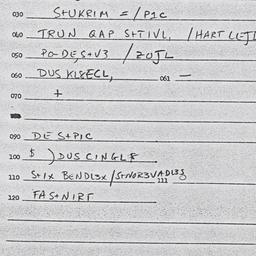 030 StUKRIM = / PIC
040 TRUN GAP StTIVL, / HART LETL
050 PO-DEStV3 / ZOJL
060 DUS KL8ECL, 061 —
070 +
090 DE StPIC
100 $ ) DUS CINGL8
110 StIX BENDL3X / StNOR3VADL33 111
120 FAStNIRT